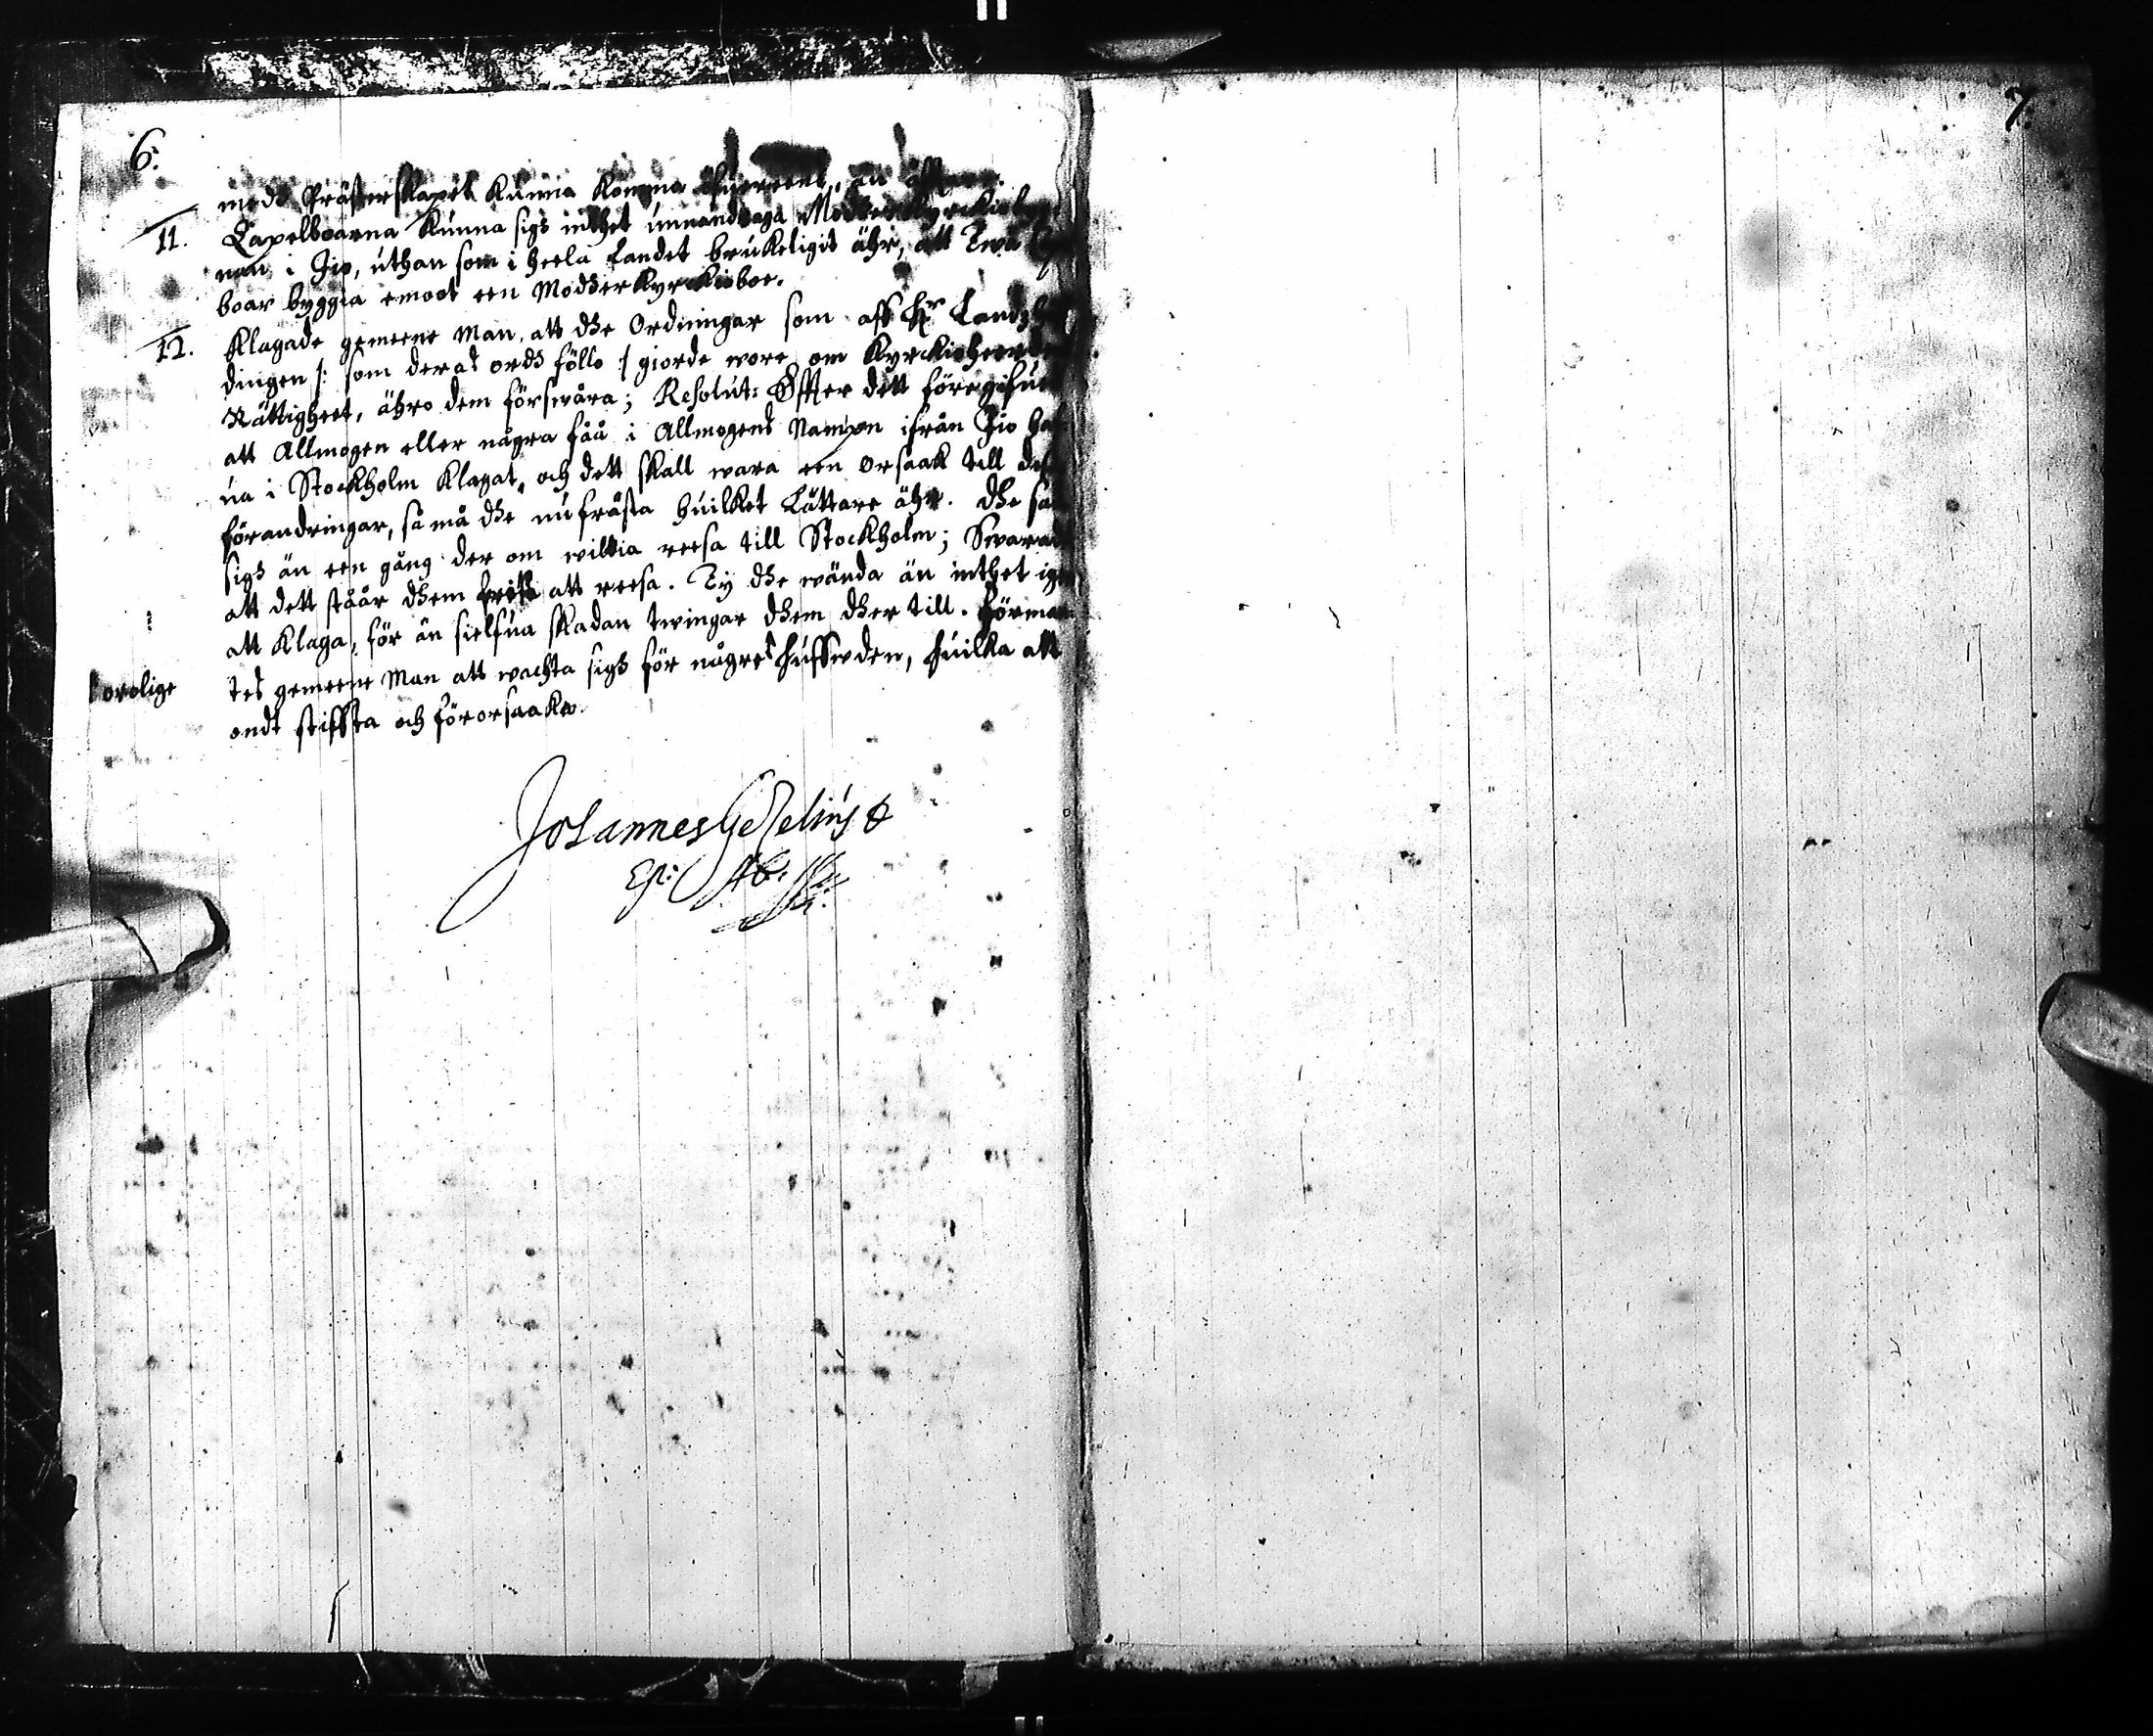 6:
medh Prästerskapet kunna komma öfwereens, än
11. Capelboarna kunna sigh inthet unnandraga Moderkyrkio
nan i Ijo, uthan som i heela Landet brukeligit ähr, att Twå
boar byggia emoot een Moderkyrkioboe.
12. Klagade gemeene Man, att dhe Ordningar som aff Hr Landzhöf
dingen /: som deras ordh föllo :/ giorde wore om Kyrkioheerdens
Rättigheet, ähro dem förswåra; Resolut: Effter dett föregifues
att Allmogen eller några fåå i Allmogens Nampn ifrån Ijo haf
ua i Stockholm klagat, och dett skall wara een orsaak till de
förandringar, så må dhe nu frästa huilket Lättare ähr. Dhe sade
sigh än een gång der om willia reesa till Stockholm; Swarades
att dett ståår dhem fritt att reesa. Ty dhe wända än inthet igen
att klaga, för än sielfua skadan twingar dhem dher till. Förman
orolige
tes gemeene Man att wachta sigh för någres hufwden, huilka att
ondt stiffta och förorsaaka.
Johannes Gezelius
Ep: Ab:
7.